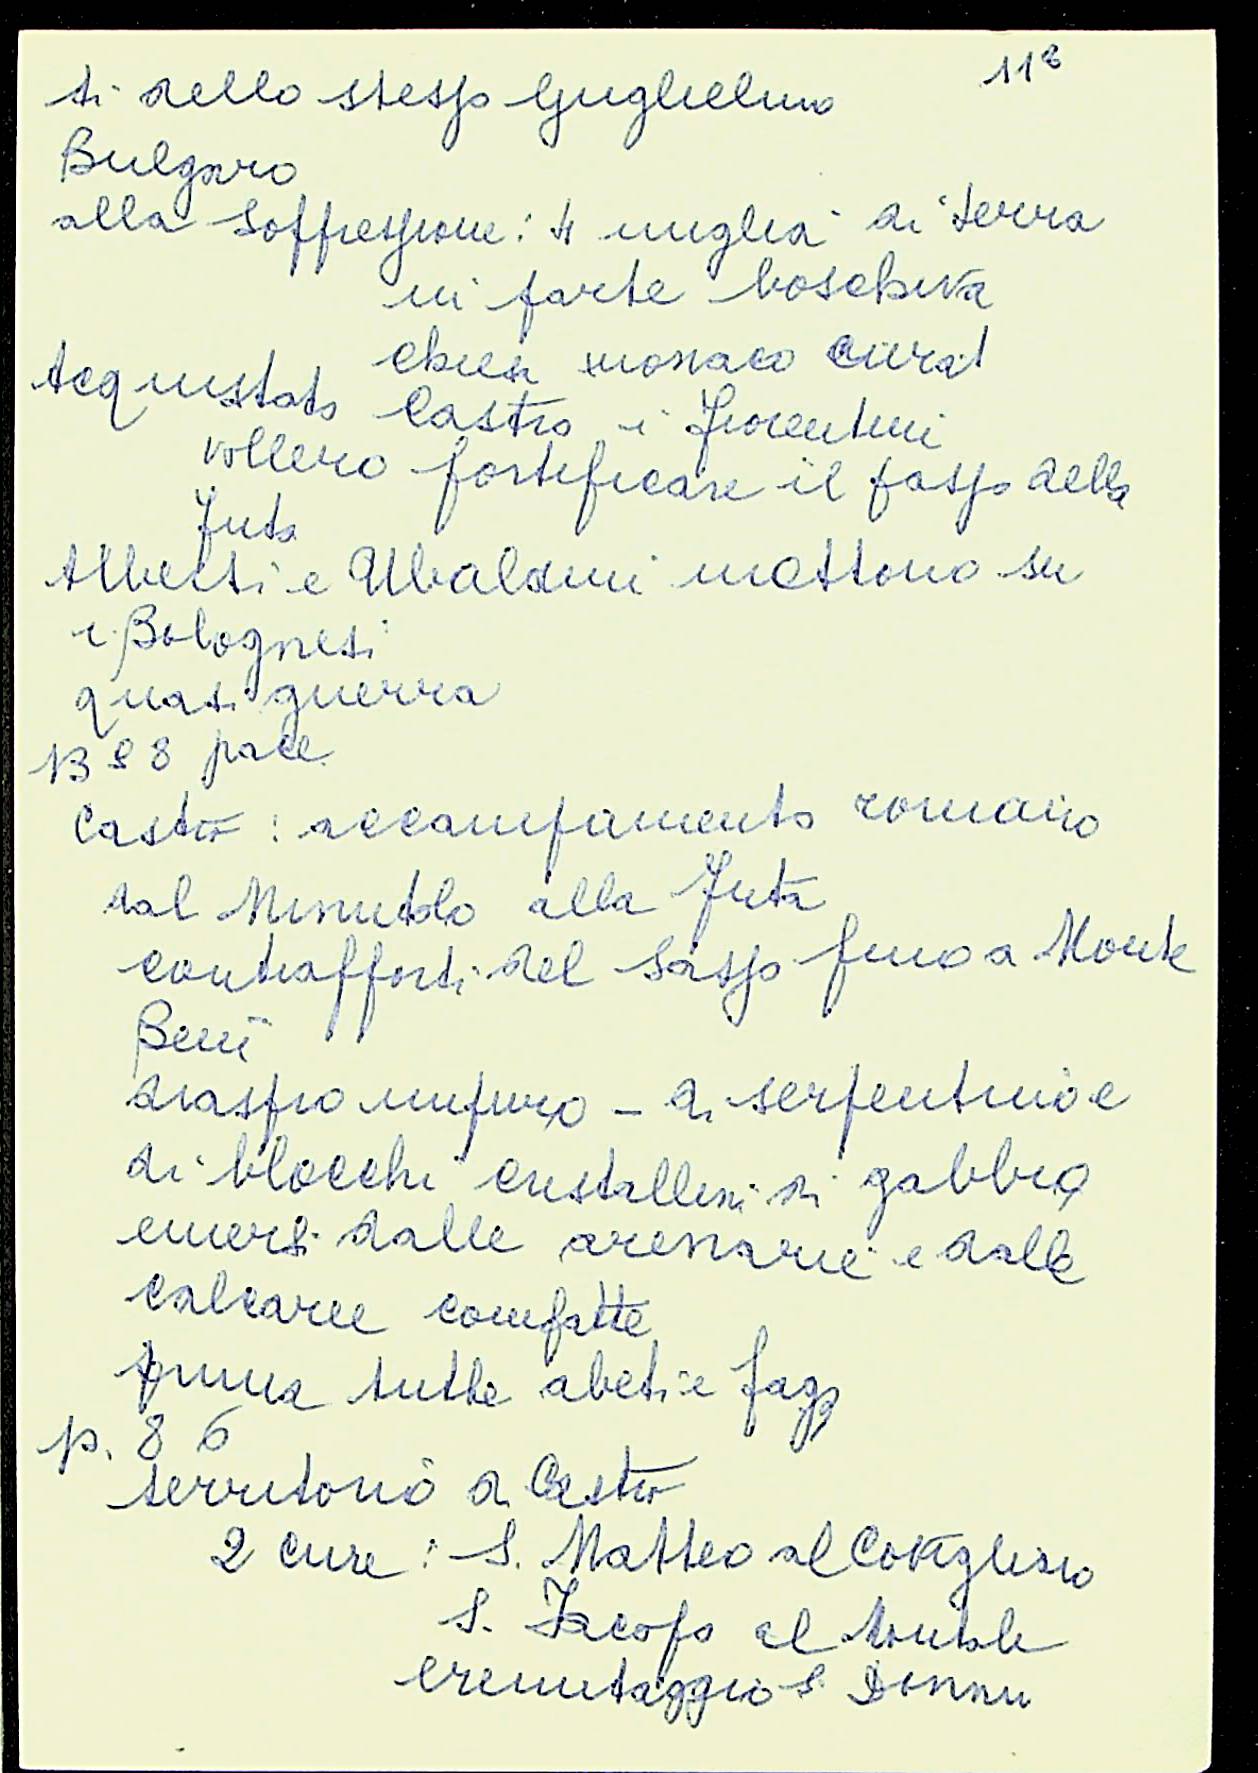 118
ti dello stesso Guglielmo
Bulgaro
alla soffressione: 4 miglia di terra
in parte boschiva
chiesa monaco curat
Acquistato Castro i Fiorentini
vollero fortificare il passo della
Futa
Alberti e Ubaldini mettono su
i Bolognesi
quasi guerra
13 8 pace
Castro: accampamento romano
dal Minutolo alla Futa
contrafforti del Sasso fino a Monte
Beni
diaspro impuro - di serpentino e
di blocchi cristallini di gabbro
emersi dalle arenarie e dalle
calcaree compatte
prima tutte abeti e faggi
p. 86
territorio di Castro
2 cure: S. Matteo al Covigliaio
S. Jacopo al
eremitaggio S.